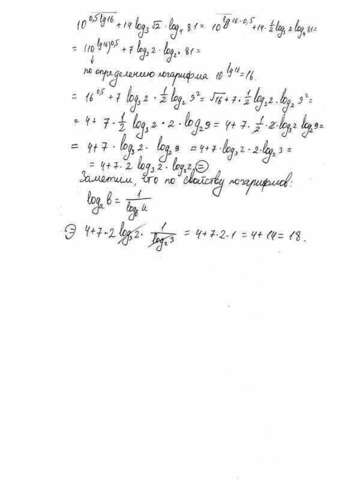 10^(0,5lg16) + 14 log₃ √2 · log₄ 81 = 10^(lg16·0,5) + 14 · ½ log₃ 2 log₄ 81
= (10^(lg16))^0,5 + 7 log₃ 2 · log₄ 81 =
↓
по определению логарифма 10^(lg16) = 16.
= 16^0,5 + 7 log₃ 2 · ½ log₂ 9² = √16 + 7 · ½ log₃ 2 · log₂ 9² =
= 4 + 7 · ½ log₃ 2 · 2 · log₂ 9 = 4 + 7 · ½ · 2 · log₃ 2 log₂ 9 =
= 4 + 7 · log₃ 2 · log₂ 9 = 4 + 7 · log₃ 2 · 2 · log₂ 3 =
= 4 + 7 · 2 log₃ 2 · log₂ =
Заметим, что по свойству логарифмов:
logₐ b = 1/log_b a
= 4 + 7 · 2 log₃ 2 · 1/log₂ 3 = 4 + 7 · 2 · 1 = 4 + 14 = 18.